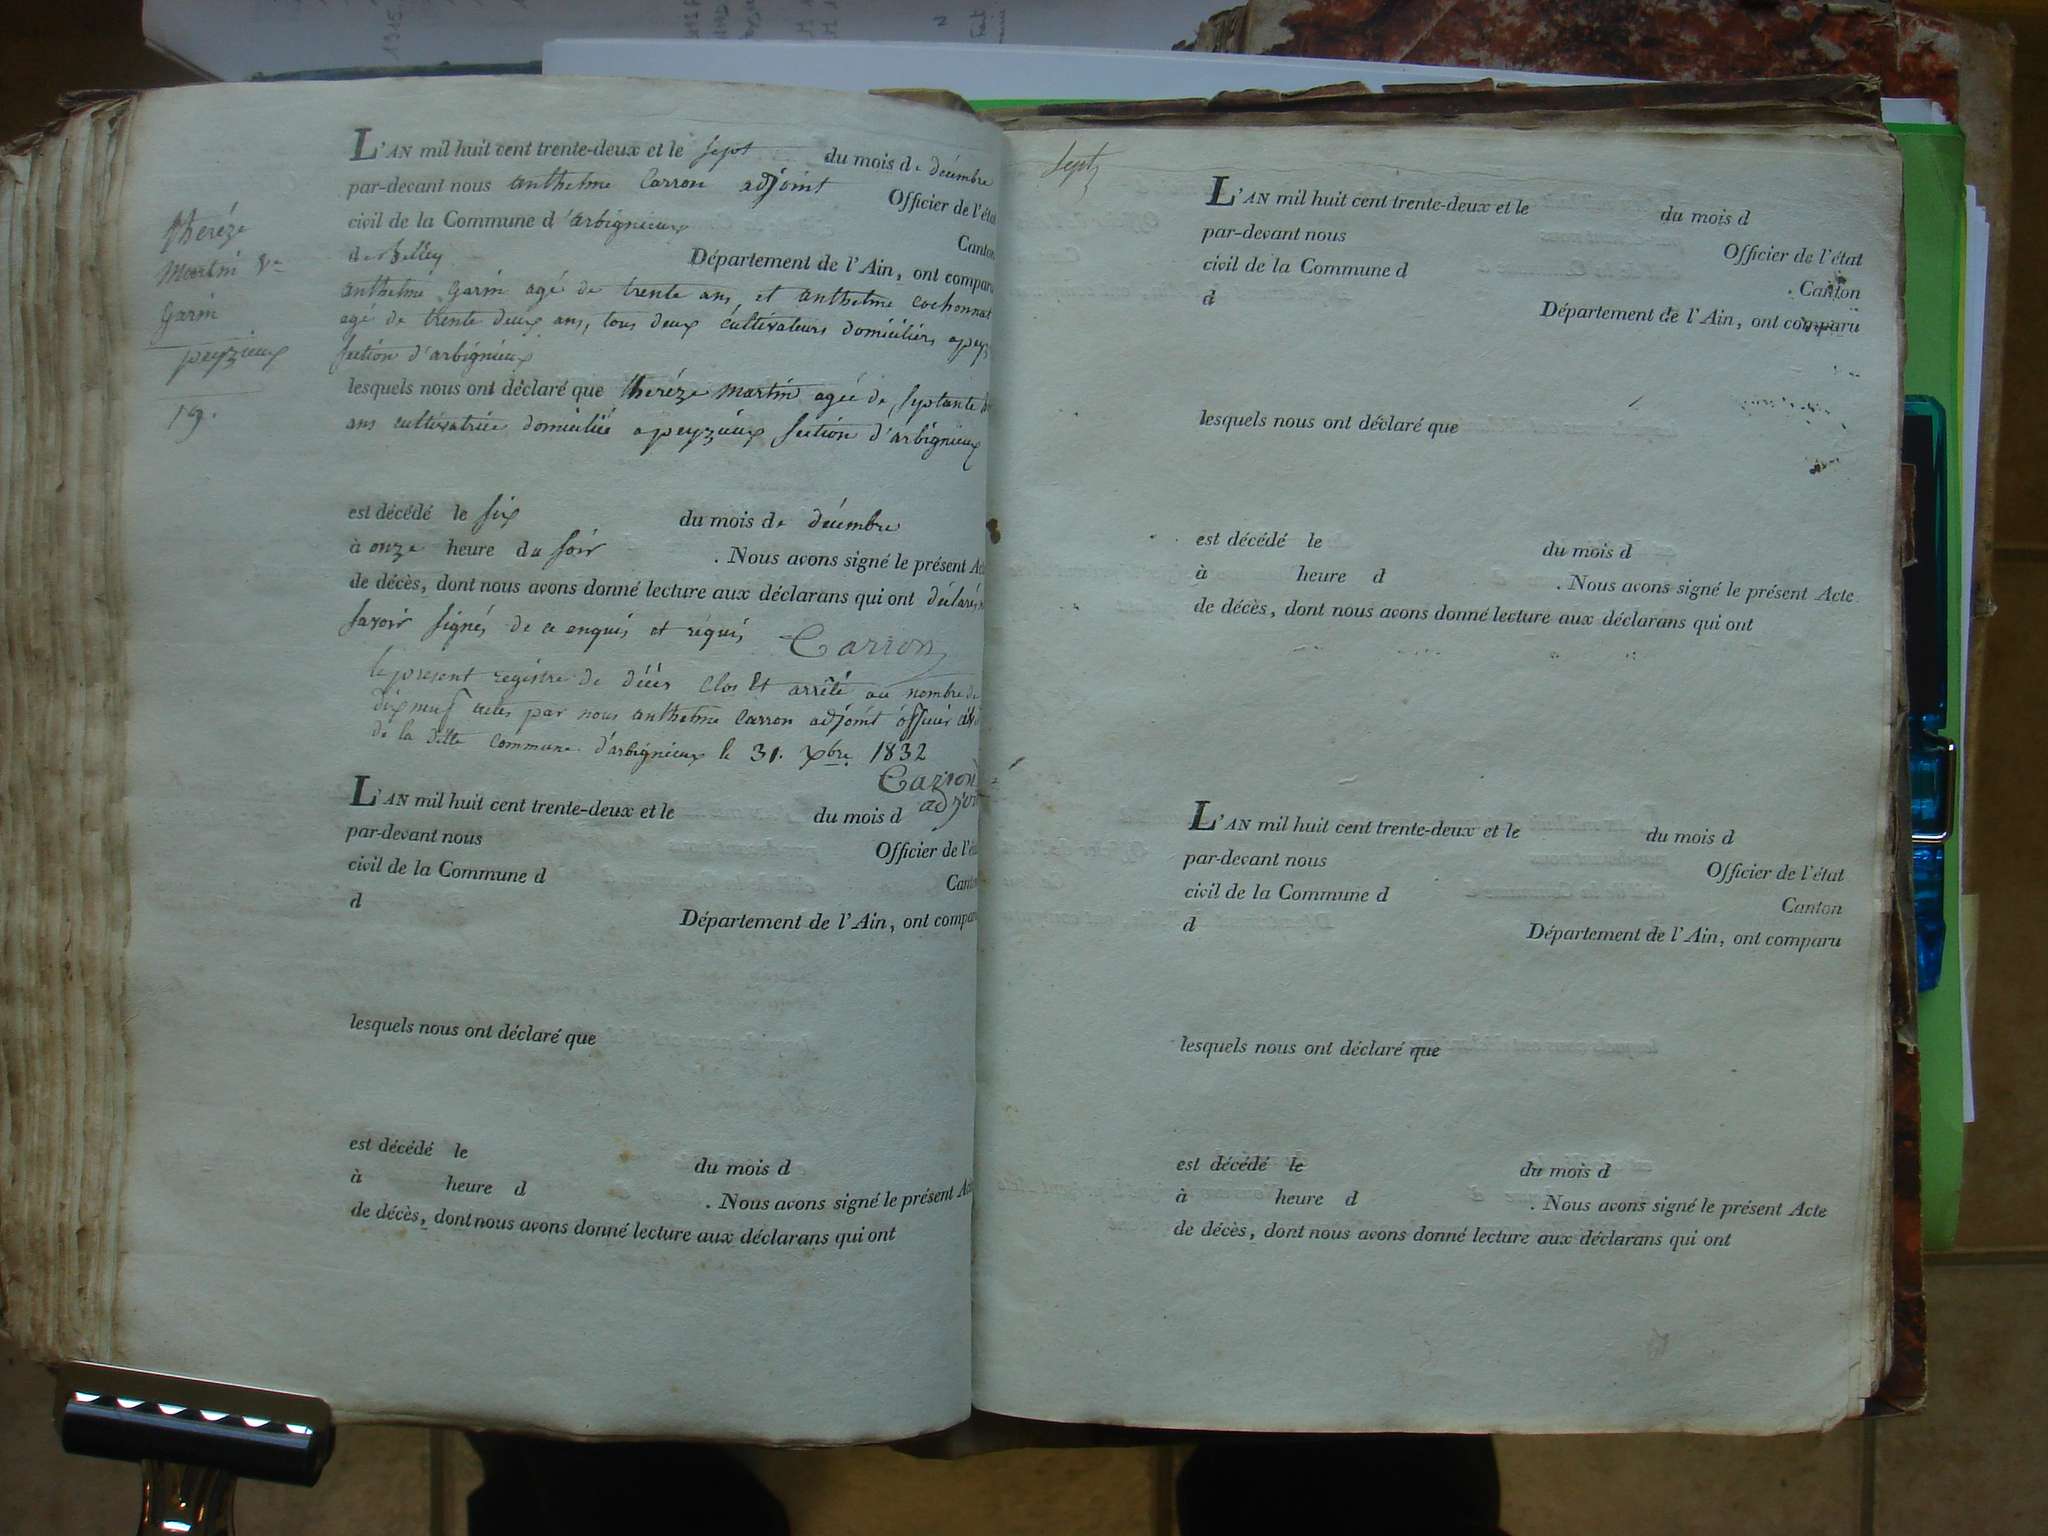 theréze
martin Ve
garin
peyzieux
19.
L'AN mil huit cent trente-deux et le sept du mois de décembre
par-devant nous anthelme Carron adjoint Officier de l'état
civil de la Commune d'arbignieux Canton
de Belley Département de l'Ain, ont comparu
anthelme garin agé de trente ans, et anthelme cochonnat
agé de trente deux ans, tous deux cultivateurs domiciliés a peyz
section d'arbignieux
lesquels nous ont déclaré que theréze martin agée de septante
ans cultivatrice domicilié a peyzieux section d'arbignieux
est décédé le six du mois de décembre
à onze heure du soir . Nous avons signé le présent
de décès, dont nous avons donné lecture aux déclarans qui ont déclarés
savoir signés de ce enquis et requis Carron
le present registre de décès clos Et arrêté au nombre de
dix neuf actes par nous anthelme Carron adjoint officier
de la ditte commune d'arbignieux le 31. Xbre 1832
Carron
adjoint
L'AN mil huit cent trente-deux et le du mois d
par-devant nous Officier de l'état
civil de la Commune d Canton
d Département de l'Ain, ont comparu
lesquels nous ont déclaré que
est décédé le du mois d
à heure d . Nous avons signé le présent Acte
de décès, dont nous avons donné lecture aux déclarans qui ont
Sept
L'AN mil huit cent trente-deux et le du mois d
par-devant nous Officier de l'état
civil de la Commune d Canton
d Département de l'Ain, ont comparu
lesquels nous ont déclaré que
est décédé le du mois d
à heure d . Nous avons signé le présent Acte
de décès, dont nous avons donné lecture aux déclarans qui ont
L'AN mil huit cent trente-deux et le du mois d
par-devant nous Officier de l'état
civil de la Commune d Canton
d Département de l'Ain, ont comparu
lesquels nous ont déclaré que
est décédé le du mois d
à heure d . Nous avons signé le présent Acte
de décès, dont nous avons donné lecture aux déclarans qui ont